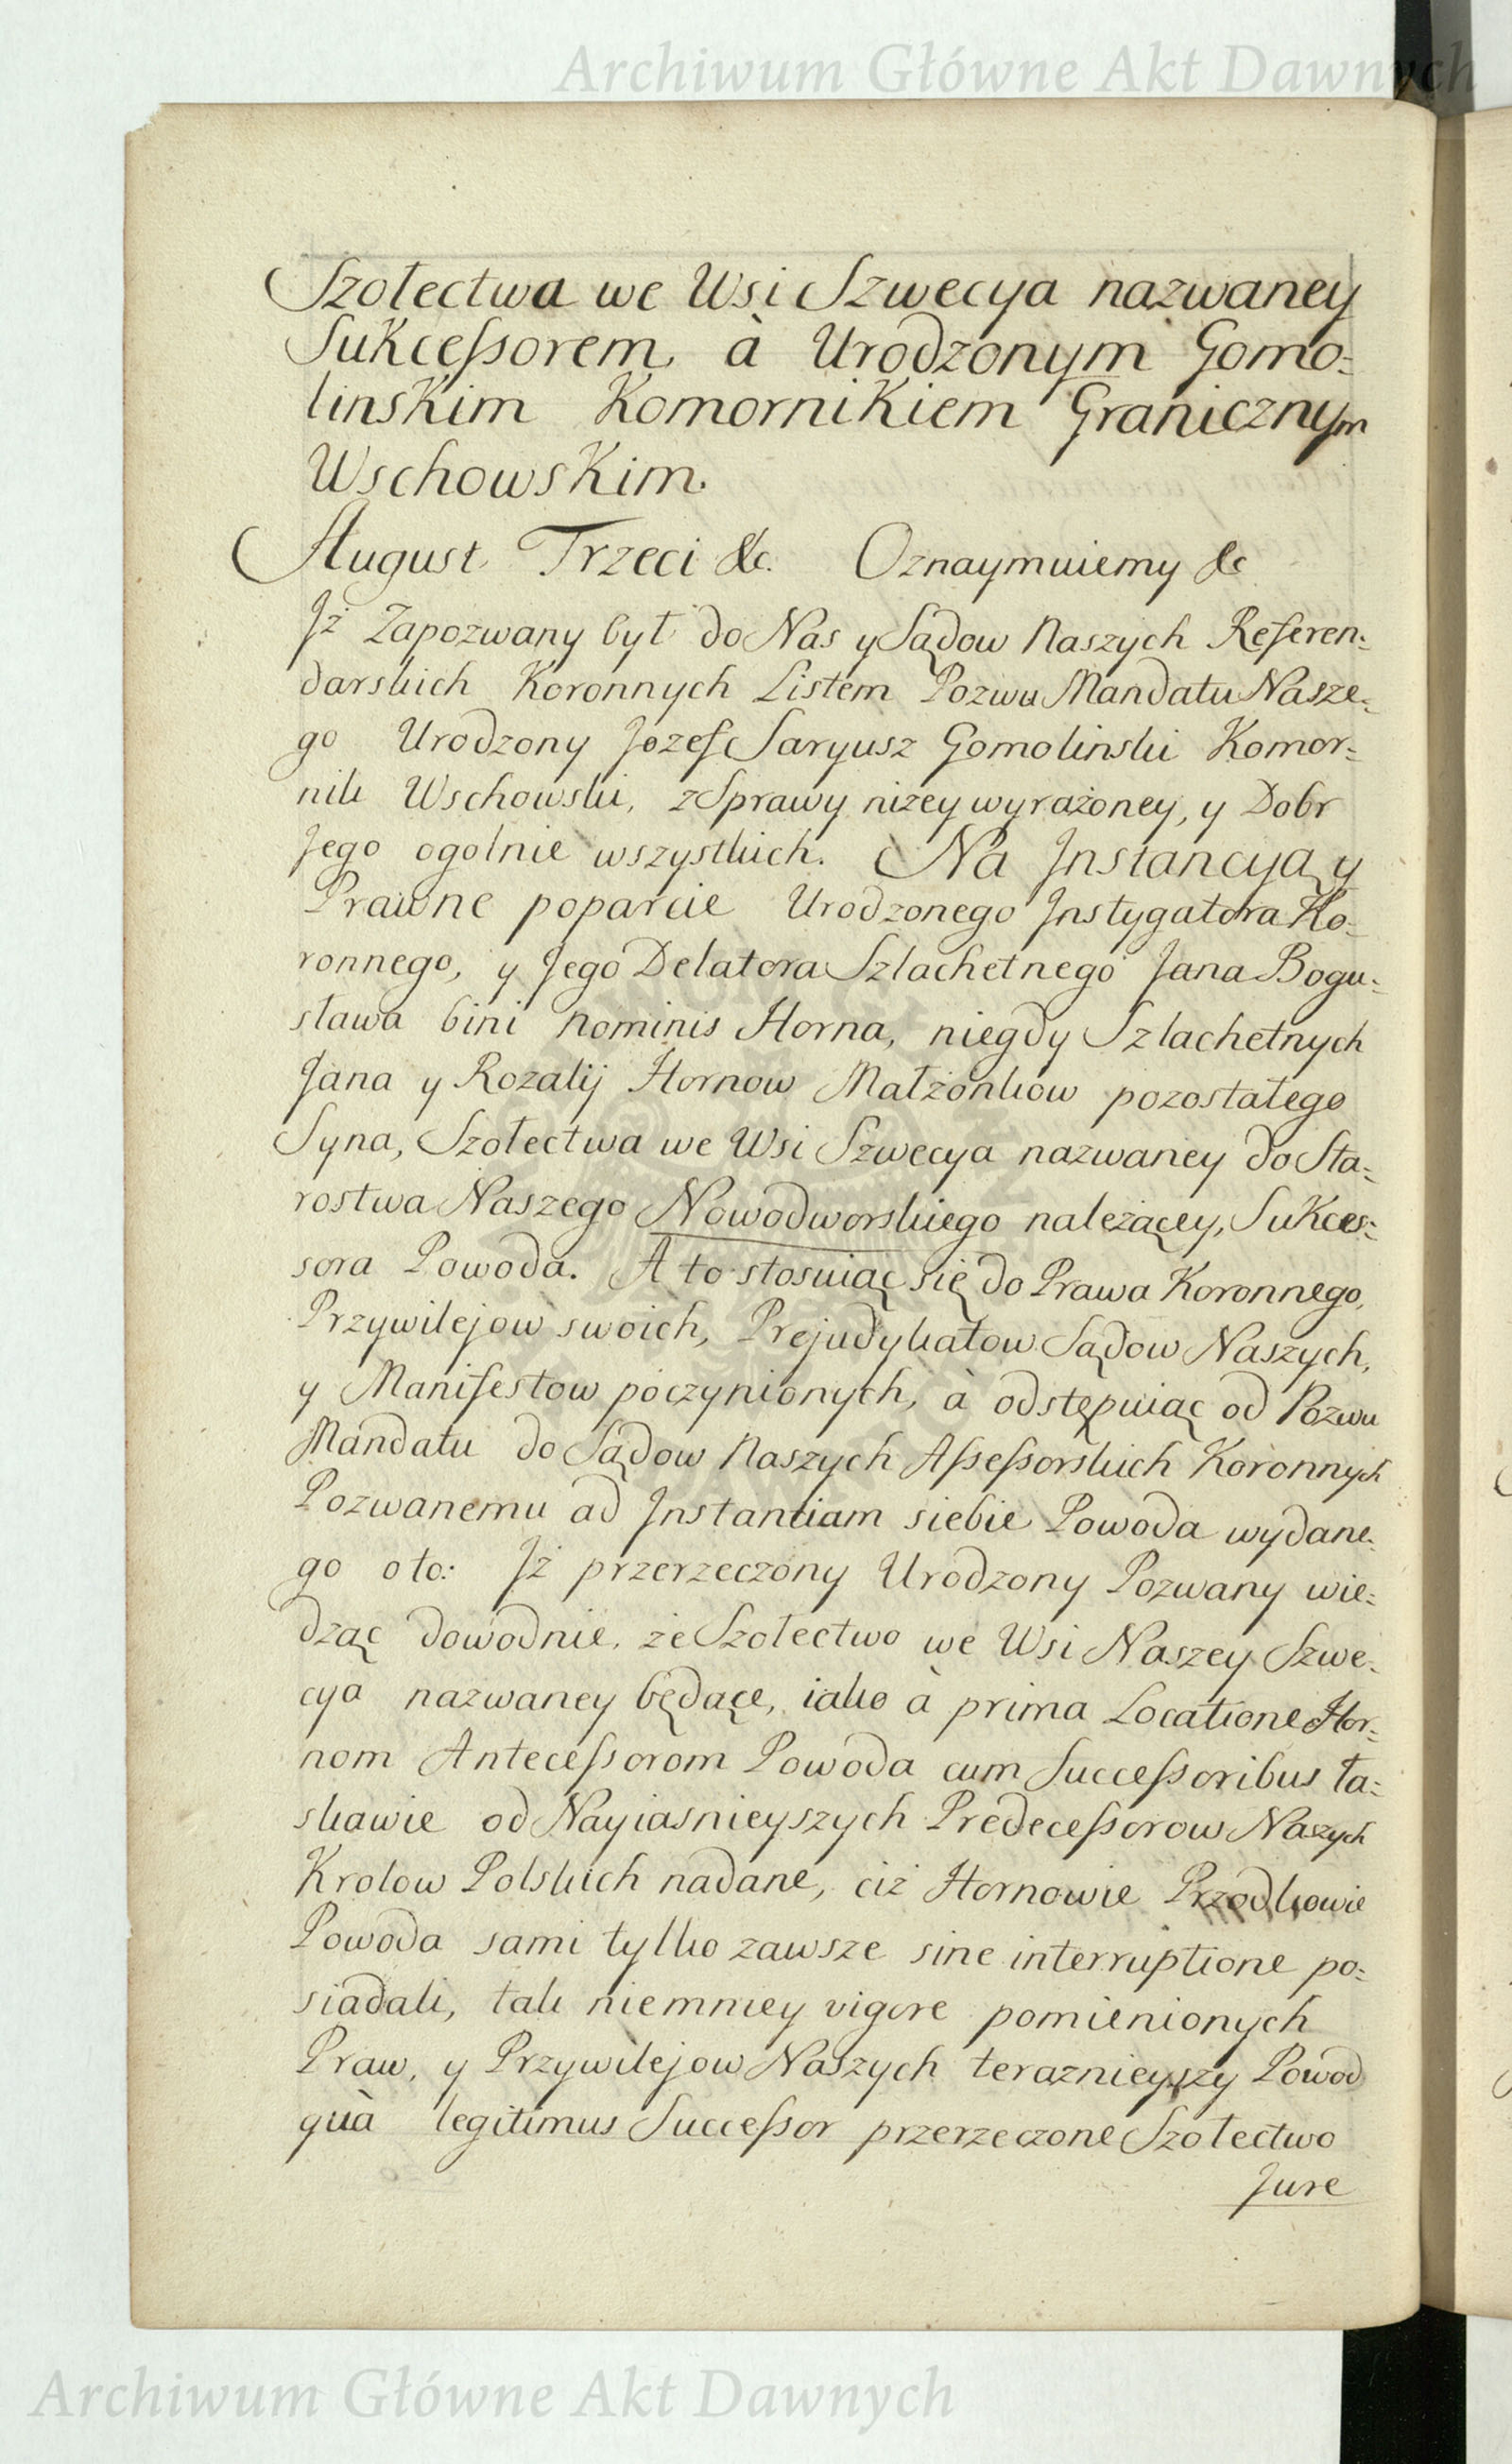 Archiwum Główne Akt Dawnych
Szołectwa we Wsi Szwecya nazwaney
Sukceßorem, à Urodzonym Gomo=
linskim Komornikiem Granicznym
Wschowskim.
August Trzeci &c. Oznaymuiemy &c
Jż Zapozwany był do Nas y Sądow Naszych Referen=
darskich Koronnych Listem Pozwu Mandatu Nasze=
go Urodzony Jozef Saryusz Gomolinski Komor=
nik Wschowski, z Sprawy niżey wyrażoney, y Dobr
Jego ogolnie wszystkich. Na Jnstancyą y
Prawne poparcie Urodzonego Jnstygatora Ko=
ronnego, y Jego Delatora Szlachetnego Jana Bogu=
sława bini Nominis Horna, niegdy Szlachetnych
Jana y Rozalij Hornow Małżonkow pozostałego
Syna, Szołectwa we Wsi Szwecya nazwaney do Sta=
rostwa Naszego Nowodworskiego należącey, Sukces=
sora Powoda. A to stosuiąc się do Prawa Koronnego,
Przywilejow swoich, Prejudykatow Sądow Naszych,
y Manifestow poczynionych, à odstępuiąc od Pozwu
Mandatu do Sądow Naszych Aßeßorskich Koronnych
Pozwanemu ad Jnstantiam siebie Powoda wydane=
go oto: Jż przerzeczony Urodzony Pozwany wie=
dząc dowodnie, że Szołectwo we Wsi Naszey Szwe=
cya nazwaney będące, iako à prima Locatione Hor=
nom Anteceßorom Powoda cum Succeßoribus ła=
skawie od Nayiasnieyszych Predeceßorow Naszych
Krolow Polskich nadane, ciż Hornowie Przodkowie
Powoda sami tylko zawsze sine interruptione po=
siadali, tak niemniey vigore pomienionych
Praw, y Przywilejow Naszych teraznieyszy Powod
quà legitimus Succeßor przerzeczone Szołectwo
Jure
Archiwum Główne Akt Dawnych